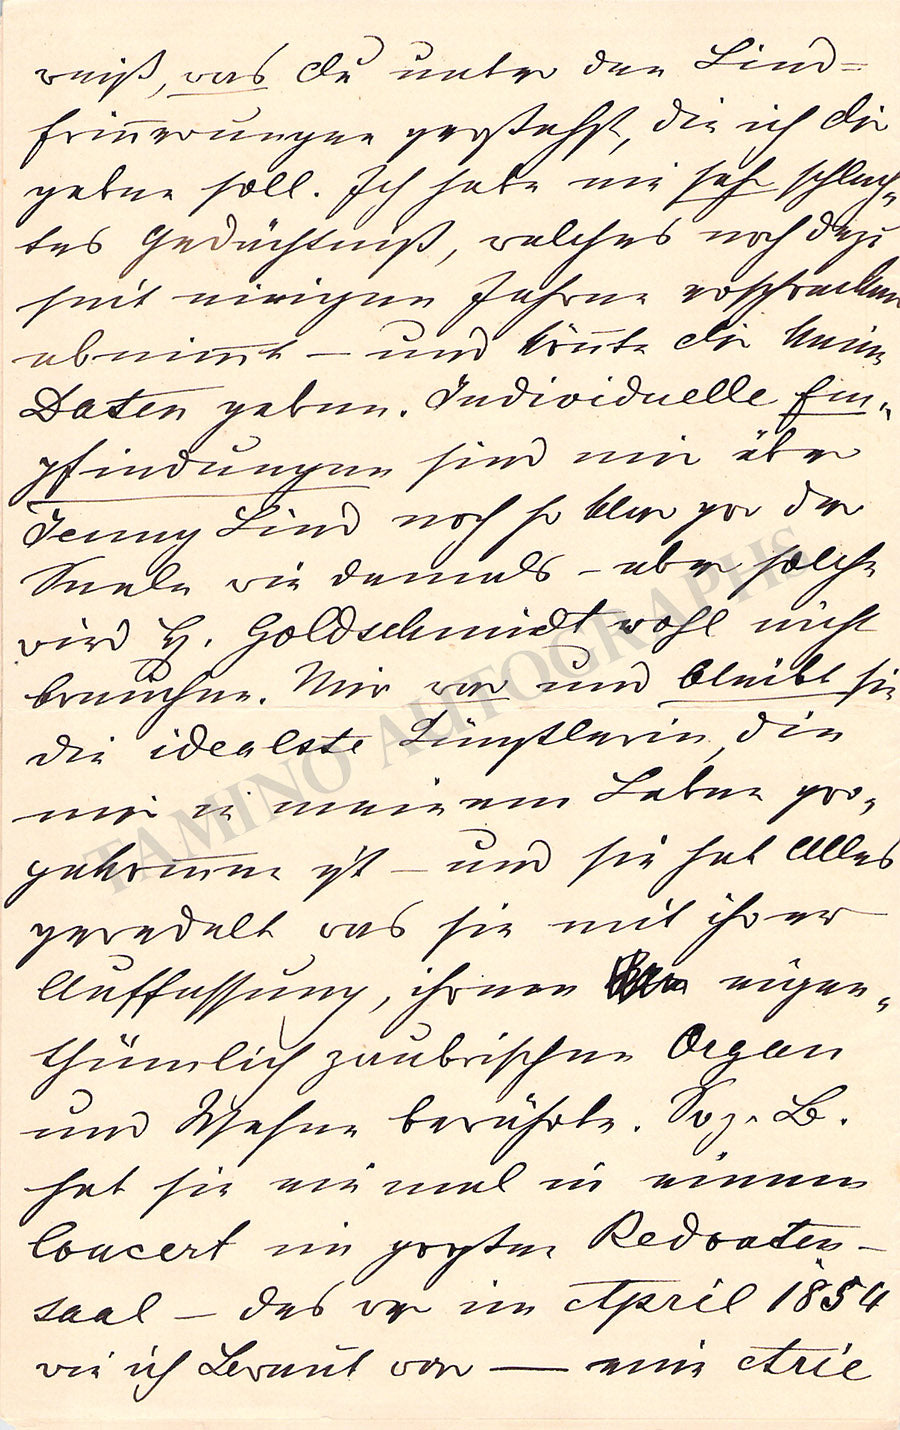 weiß, was Du unter den Lind=
Erinnerungen verstehst, die ich dir
geben soll. Ich habe ein sehr schlech-
tes Gedächtniß, welches noch dazu
seit einigen Jahren erschrecken
abnimmt – und könnte dir keine
Daten geben. Individuelle Em-
pfindungen sind mir über
Jenny Lind noch so klar vor der
Seele wie damals – aber solche
wird H. Goldschmidt wohl nicht
brauchen. Mir war und bleibt sie
die idealste Künstlerin, die
mir in meinem Leben vor-
gekommen ist – und sie hat Alles
veredelt was sie mit ihrer
Auffassung, ihrem eigen-
thümlich zaubrischen Organ
und Wesen berührte. So z. B.
hat sie einmal in einem
Concert im großen Redouten-
saal – das war im April 1854
wie ich Braut war — eine Arie
TAMINO AUTOGRAPHS